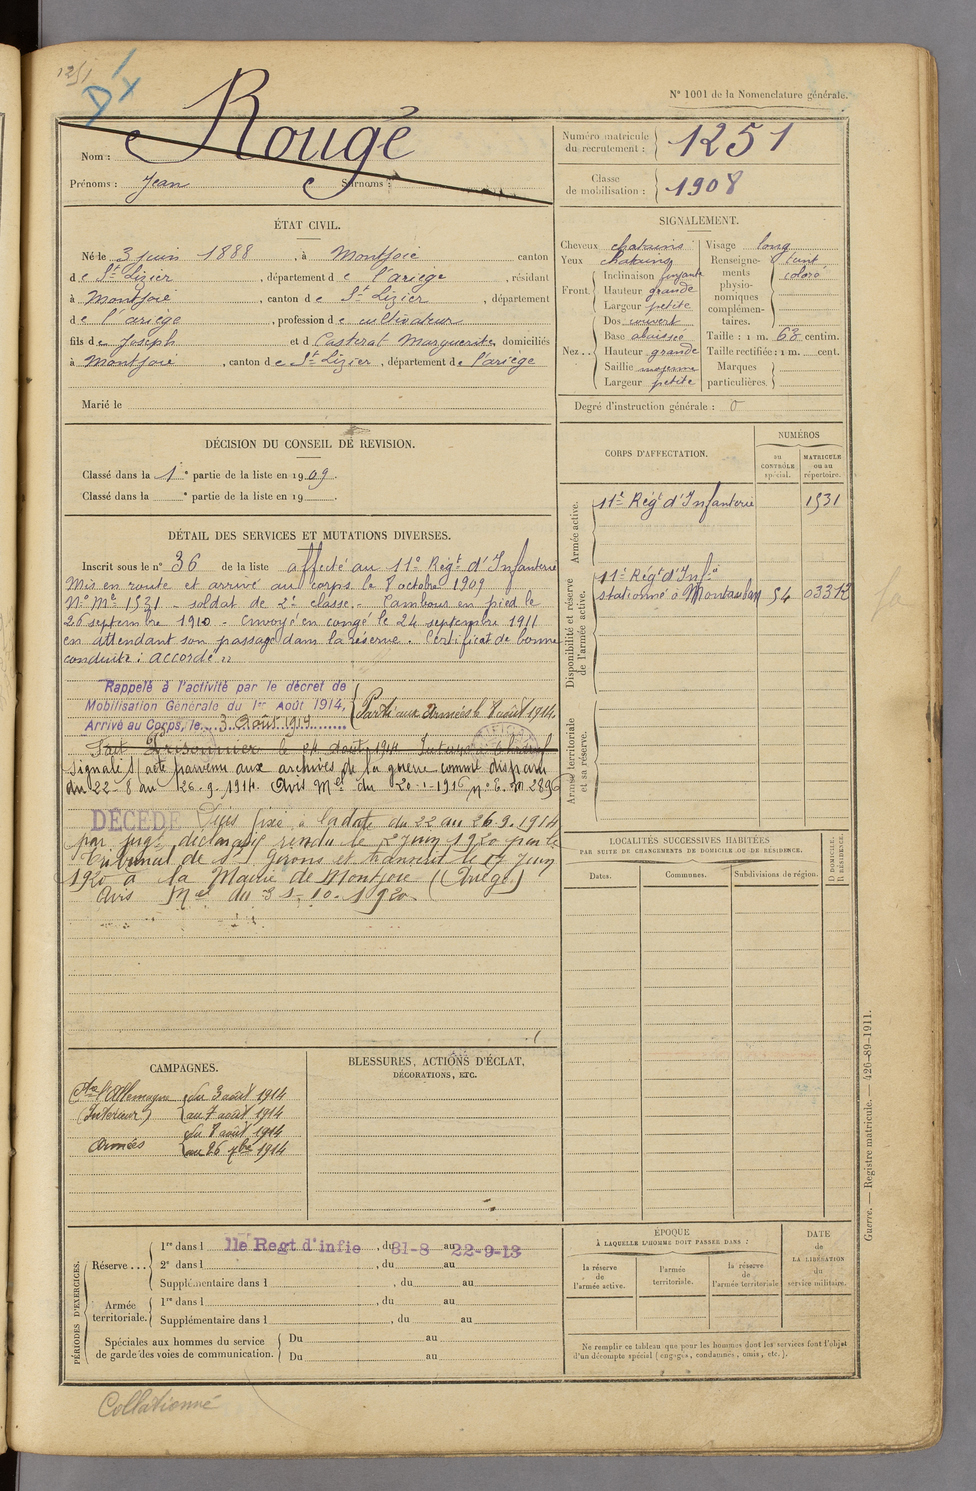 1251
D'x
N° 1001 de la Nomenclature générale.
Nom : Rougé
Prénoms : Jean Surnoms :
Numéro matricule du recrutement : 1251
Classe de mobilisation : 1908
ÉTAT CIVIL.
Né le 3 juin 1888, à Montjoie canton
de St Lizier, département de l'ariège, résidant
à Montjoie, canton de St Lizier, département
de l'ariège, profession de cultivateur
fils de Joseph et d Casterat Marguerite domiciliés
à Montjoie, canton de St Lizier, département de l'ariège
Marié le
SIGNALEMENT.
Cheveux chatains
Yeux chatains
Front. Inclinaison fuyante
Hauteur grande
Largeur petite
Nez... Dos couvert
Base abaissée
Hauteur grande
Saillie moyenne
Largeur petite
Visage long
Renseignements physionomiques complémentaires. teint coloré
Taille : 1 m. 63 centim.
Taille rectifiée : 1 m. cent.
Marques particulières.
Degré d'instruction générale : 0
DÉCISION DU CONSEIL DE REVISION.
Classé dans la 1e partie de la liste en 1909.
Classé dans la e partie de la liste en 19
DÉTAIL DES SERVICES ET MUTATIONS DIVERSES.
Inscrit sous le n° 36 de la liste affecté au 11e Régt d'Infanterie
Mis en route et arrivé au corps le 8 octobre 1909
N° Me 1531 - soldat de 2e classe. - Tambour en pied le
26 septembre 1910 - Envoyé en congé le 24 septembre 1911
en attendant son passage dans la réserve. Certificat de bonne
conduite : accordé "
Rappelé à l'activité par le décret de
Mobilisation Générale du 1er Août 1914,
Arrivé au Corps, le 3 Août 1914
Parti aux armées le 8 août 1914.
Fait Prisonnier le 24 août 1914 Interné à
Signalé s/ acte parvenu aux archives de la guerre comme disparu
du 22-8 au 26.9.1914. Avis Mel du 20-1-1916 n° E. M 2896
DÉCÉDÉ Décès fixé à la date du 22 au 26.9.1914
par jugt déclaratif rendu le 2 Juin 1920 par le
Tribunal de St Girons et transcrit le 17 Juin
1920 à la Mairie de Montjoie (Ariège)
Avis Mel du 31-10-1920
CORPS D'AFFECTATION.
NUMÉROS
au CONTRÔLE spécial.
MATRICULE ou au répertoire.
Armée active.
11e Régt d'Infanterie 1531
Disponibilité et réserve de l'armée active.
11e Régt d'Infie
stationné à Montauban 54 03312
Armée territoriale et sa réserve.
LOCALITÉS SUCCESSIVES HABITÉES
PAR SUITE DE CHANGEMENTS DE DOMICILE OU DE RÉSIDENCE.
Dates. Communes. Subdivisions de région. D DOMICILE, R RÉSIDENCE.
CAMPAGNES.
Ctre l'Allemagne du 3 août 1914
(Intérieur) au 7 août 1914
Armées du 8 août 1914
au 26 7bre 1914
BLESSURES, ACTIONS D'ÉCLAT,
DÉCORATIONS, ETC.
PÉRIODES D'EXERCICES.
Réserve... 1re dans l 11e Regt d'infie, du 31-8 au 22-9-13
2e dans l, du au
Supplémentaire dans l, du au
Armée territoriale. 1re dans l, du au
Supplémentaire dans l, du au
Spéciales aux hommes du service de garde des voies de communication. Du au
Du au
ÉPOQUE
À LAQUELLE L'HOMME DOIT PASSER DANS :
la réserve de l'armée active.
l'armée territoriale.
la réserve de l'armée territoriale
DATE de LA LIBÉRATION du service militaire.
Ne remplir ce tableau que pour les hommes dont les services font l'objet
d'un décompte spécial (engagés, condamnés, omis, etc.).
Guerre. — Registre matricule. — 426-89-1911.
Collationné